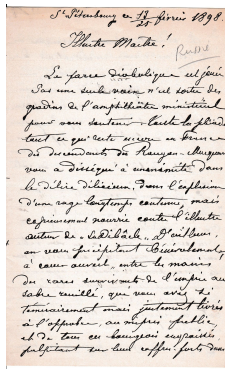 St Pétersbourg ce 13/25 février 1898.
Russie
Illustre Maître!
La farce diabolique est jouée
Pas une seule voix n'est sortie des
gradins de l'amphithéâtre ministériel
pour vous soutenir. Toute la pléiade
tout ce qui reste encore en France
des descendants du Rougon-Macquart
vous a disséqué à unanimité dans
le délire délicieux, dans l'explosion
d'une rage longtemps contenue, mais
soigneusement nourrie contre l'illustre
auteur de "La Débâcle". D'ailleurs
en vous précipitant
à cœur ouvert, entre les mains
des rares survivants de l'empire au
sabre rouillé, que vous avez si
témérairement mais justement livrés
à l'opprobre, au mépris public,
et de tous ces bourgeois engraissés
palpitant sur leur coffres-forts dans